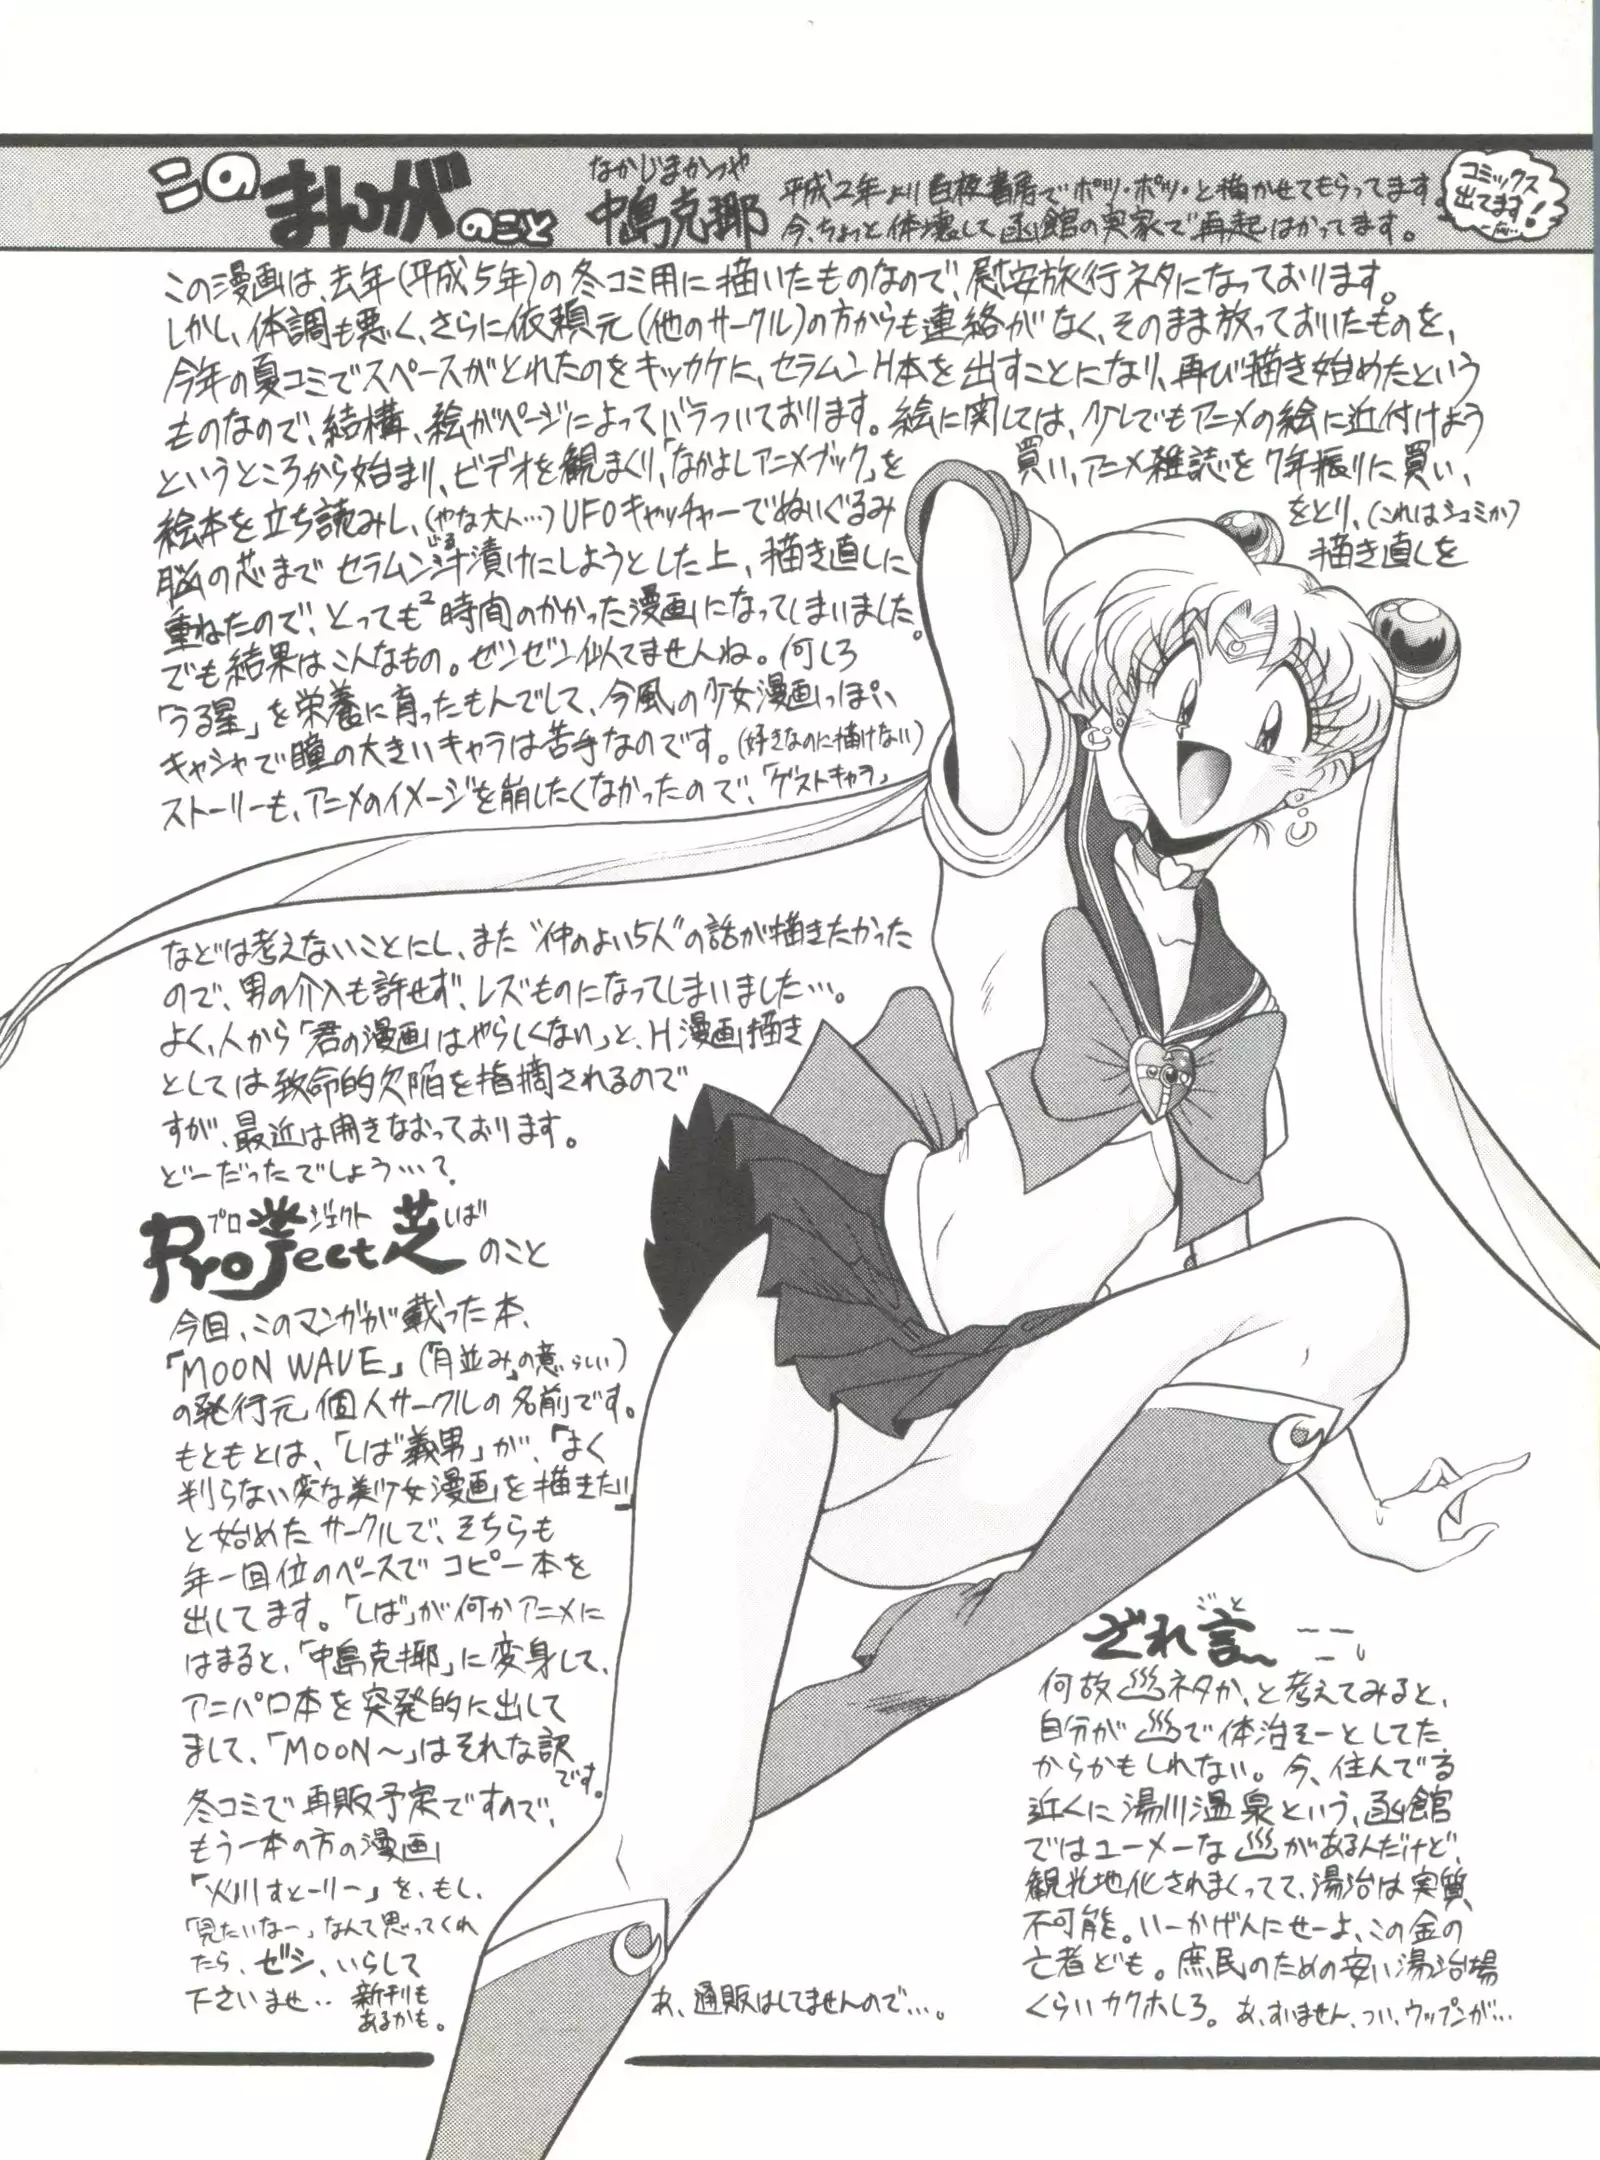 このまんがのこと
なかじまかつや
中島克耶
平成2年より白夜書房でポツ・ポツ・と描かせてもらってます
今、ちょっと体壊して函館の実家で再起はかってます。
コミックス
出てます!
この漫画は、去年(平成5年)の冬コミ用に描いたものなので、慰安旅行ネタになっております。
しかし、体調も悪く、さらに依頼元(他のサークル)の方からも連絡がなく、そのまま放っておいたものを、
今年の夏コミでスペースがとれたのをキッカケに、セラムンH本を出すことになり、再び描き始めたという
ものなので、結構、絵がページによってバラついております。絵に関しては、少しでもアニメの絵に近付けよう
というところから始まり、ビデオを観まくり、「なかよしアニメブック」を買い、アニメ雑誌を7年振りに買い、
絵本を立ち読みし、(やな大人…)UFOキャッチャーでぬいぐるみをとり、(これはシュミか)
脳の芯までセラムン汁漬けにしようとした上、描き直しに描き直しを
じる
重ねたので、とっても²時間のかかった漫画になってしまいました。
でも結果はこんなもの。ゼンゼン似てませんね。何しろ
「うる星」を栄養に育ったもんでして、今風の少女漫画っぽい
キャシャで瞳の大きいキャラは苦手なのです。(好きなのに描けない)
ストーリーも、アニメのイメージを崩したくなかったので、「ゲストキャラ」
などは考えないことにし、また"仲のよい5人"の話が描きたかった
ので、男の介入も許せず、レズものになってしまいました…。
よく、人から「君の漫画はやらしくない」と、H漫画描き
としては致命的欠陥を指摘されるので
すが、最近は開きなおっております。
どーだったでしょう…?
プロジェクトしば
Project芝のこと
今回、このマンガが載った本、
「MOON WAVE」(「月並み」の意らしい)
の発行元、個人サークルの名前です。
もともとは、「しば義男」が、「まく
判らない変な美少女漫画を描きたい」
と始めたサークルで、そちらも
年一回位のペースでコピー本を
出してます。「しば」が何かアニメに
はまると、「中島克耶」に変身して、
アニパロ本を突発的に出して
まして、「MOON〜」はそれな訳
です。
冬コミで再販予定ですので、
もう一本の方の漫画
「火川すとーりー」を、もし、
「見たいなー」なんて思ってくれ
たら、ゼシ、いらして
下さいませ‥新刊も
あるかも。
あ、通販はしてませんので…。
ざれ言
ごと
何故♨ネタか、と考えてみると、
自分が♨で体治そーとしてた
からかもしれない。今、住んでる
近くに湯川温泉という、函館
ではユーメーな♨があるんだけど、
観光地化されまくってて、湯治は実質
不可能。いーかげんにせーよ、この金の
亡者ども。庶民のための安い湯治場
くらいカクホしろ。あ、すいません、つい、ウップンが…